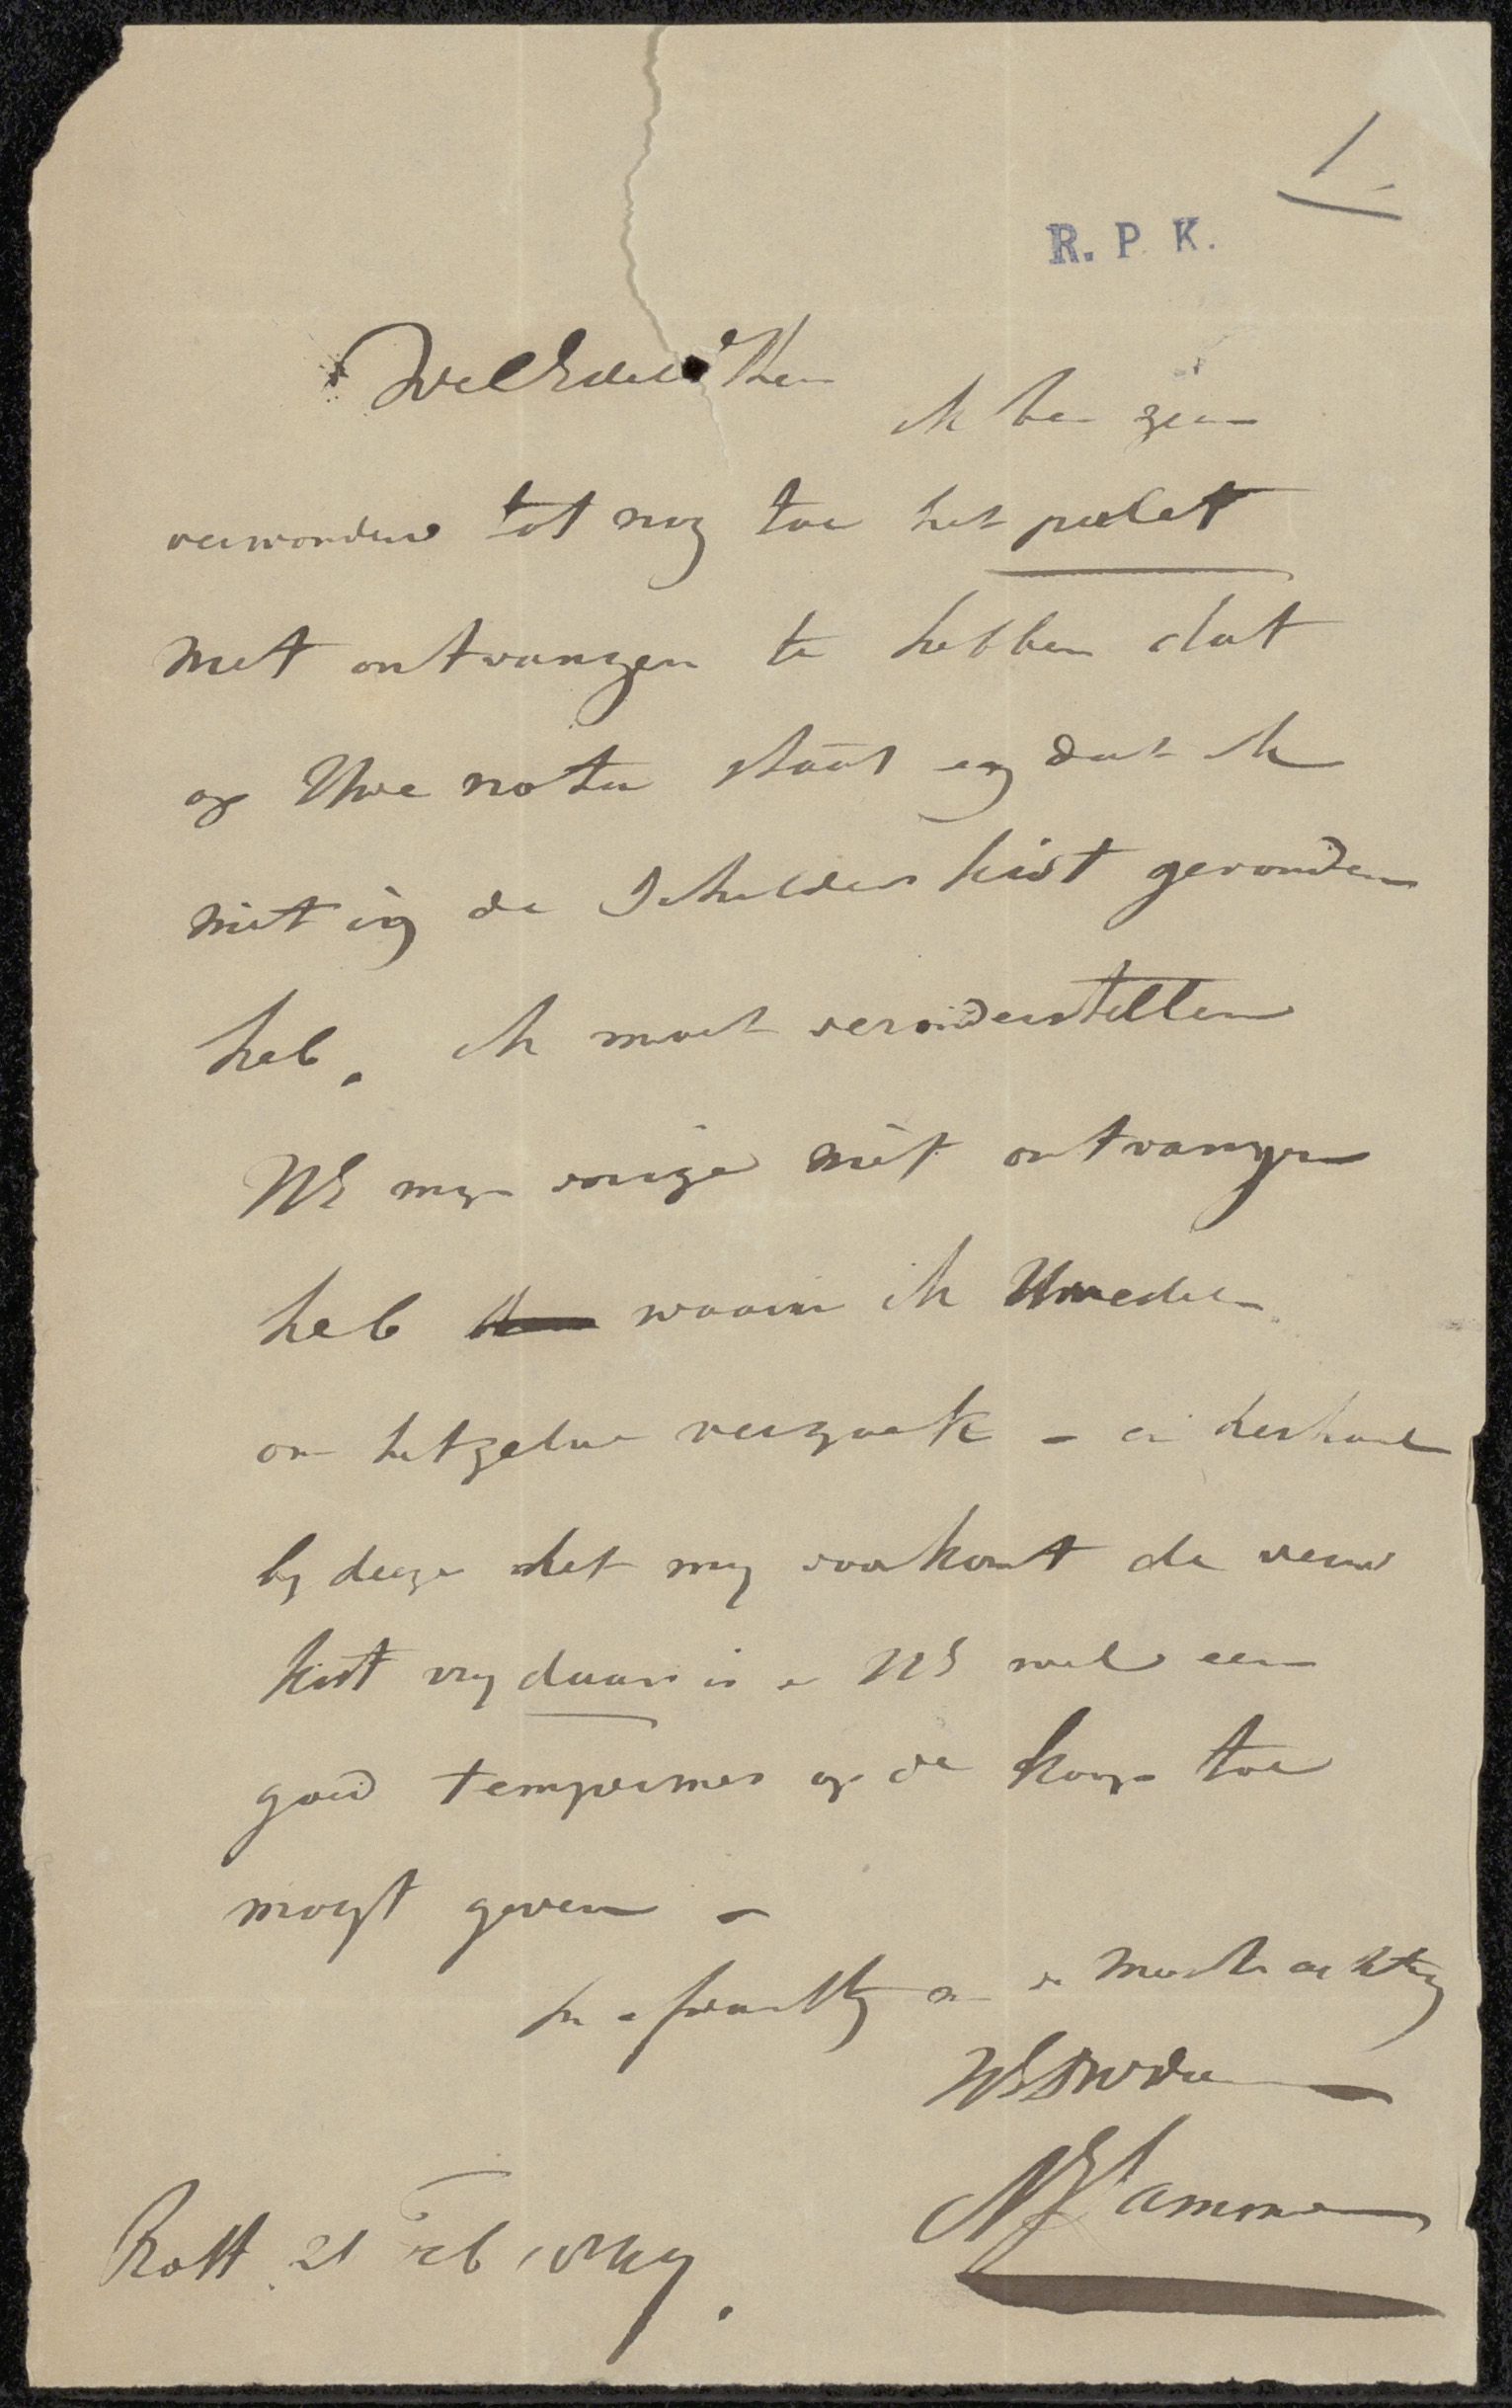 1
R. P. K.
WelEdele Heer
ik ben zeer
verwonderd tot nog toe het palet
niet ontvangen te hebben dat
op Uwe nota staat en dat ik
niet in de Schilderkist gevonden
heb. ik moet veronderstellen
UE mijn vorige niet ontvangen
heb waarin ik UwEdele
om hetzelve verzoek – en herhaal
bij deeze dat mij voorkomt de verw
kist vrij duur is en UE wel een
goed tempermes op de koop toe
mogt geven –
achting
UEDWDienaar
Rott 21 Feb